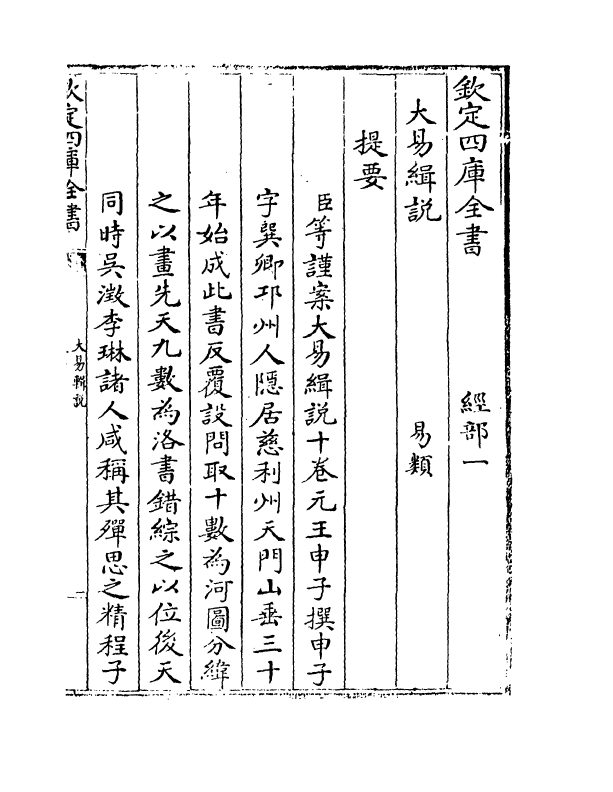 欽定四庫全書　經部一
大易緝説　易類
提要
臣等謹案大易緝説十卷元王申子撰申子
字巽卿邛州人隱居慈利州天門山垂三十
年始成此書反覆設問取十數為河圖分緯
之以畫先天九數為洛書錯綜之以位後天
同時吳澂李琳諸人咸稱其殫思之精程子
欽定四庫全書
大易輯説